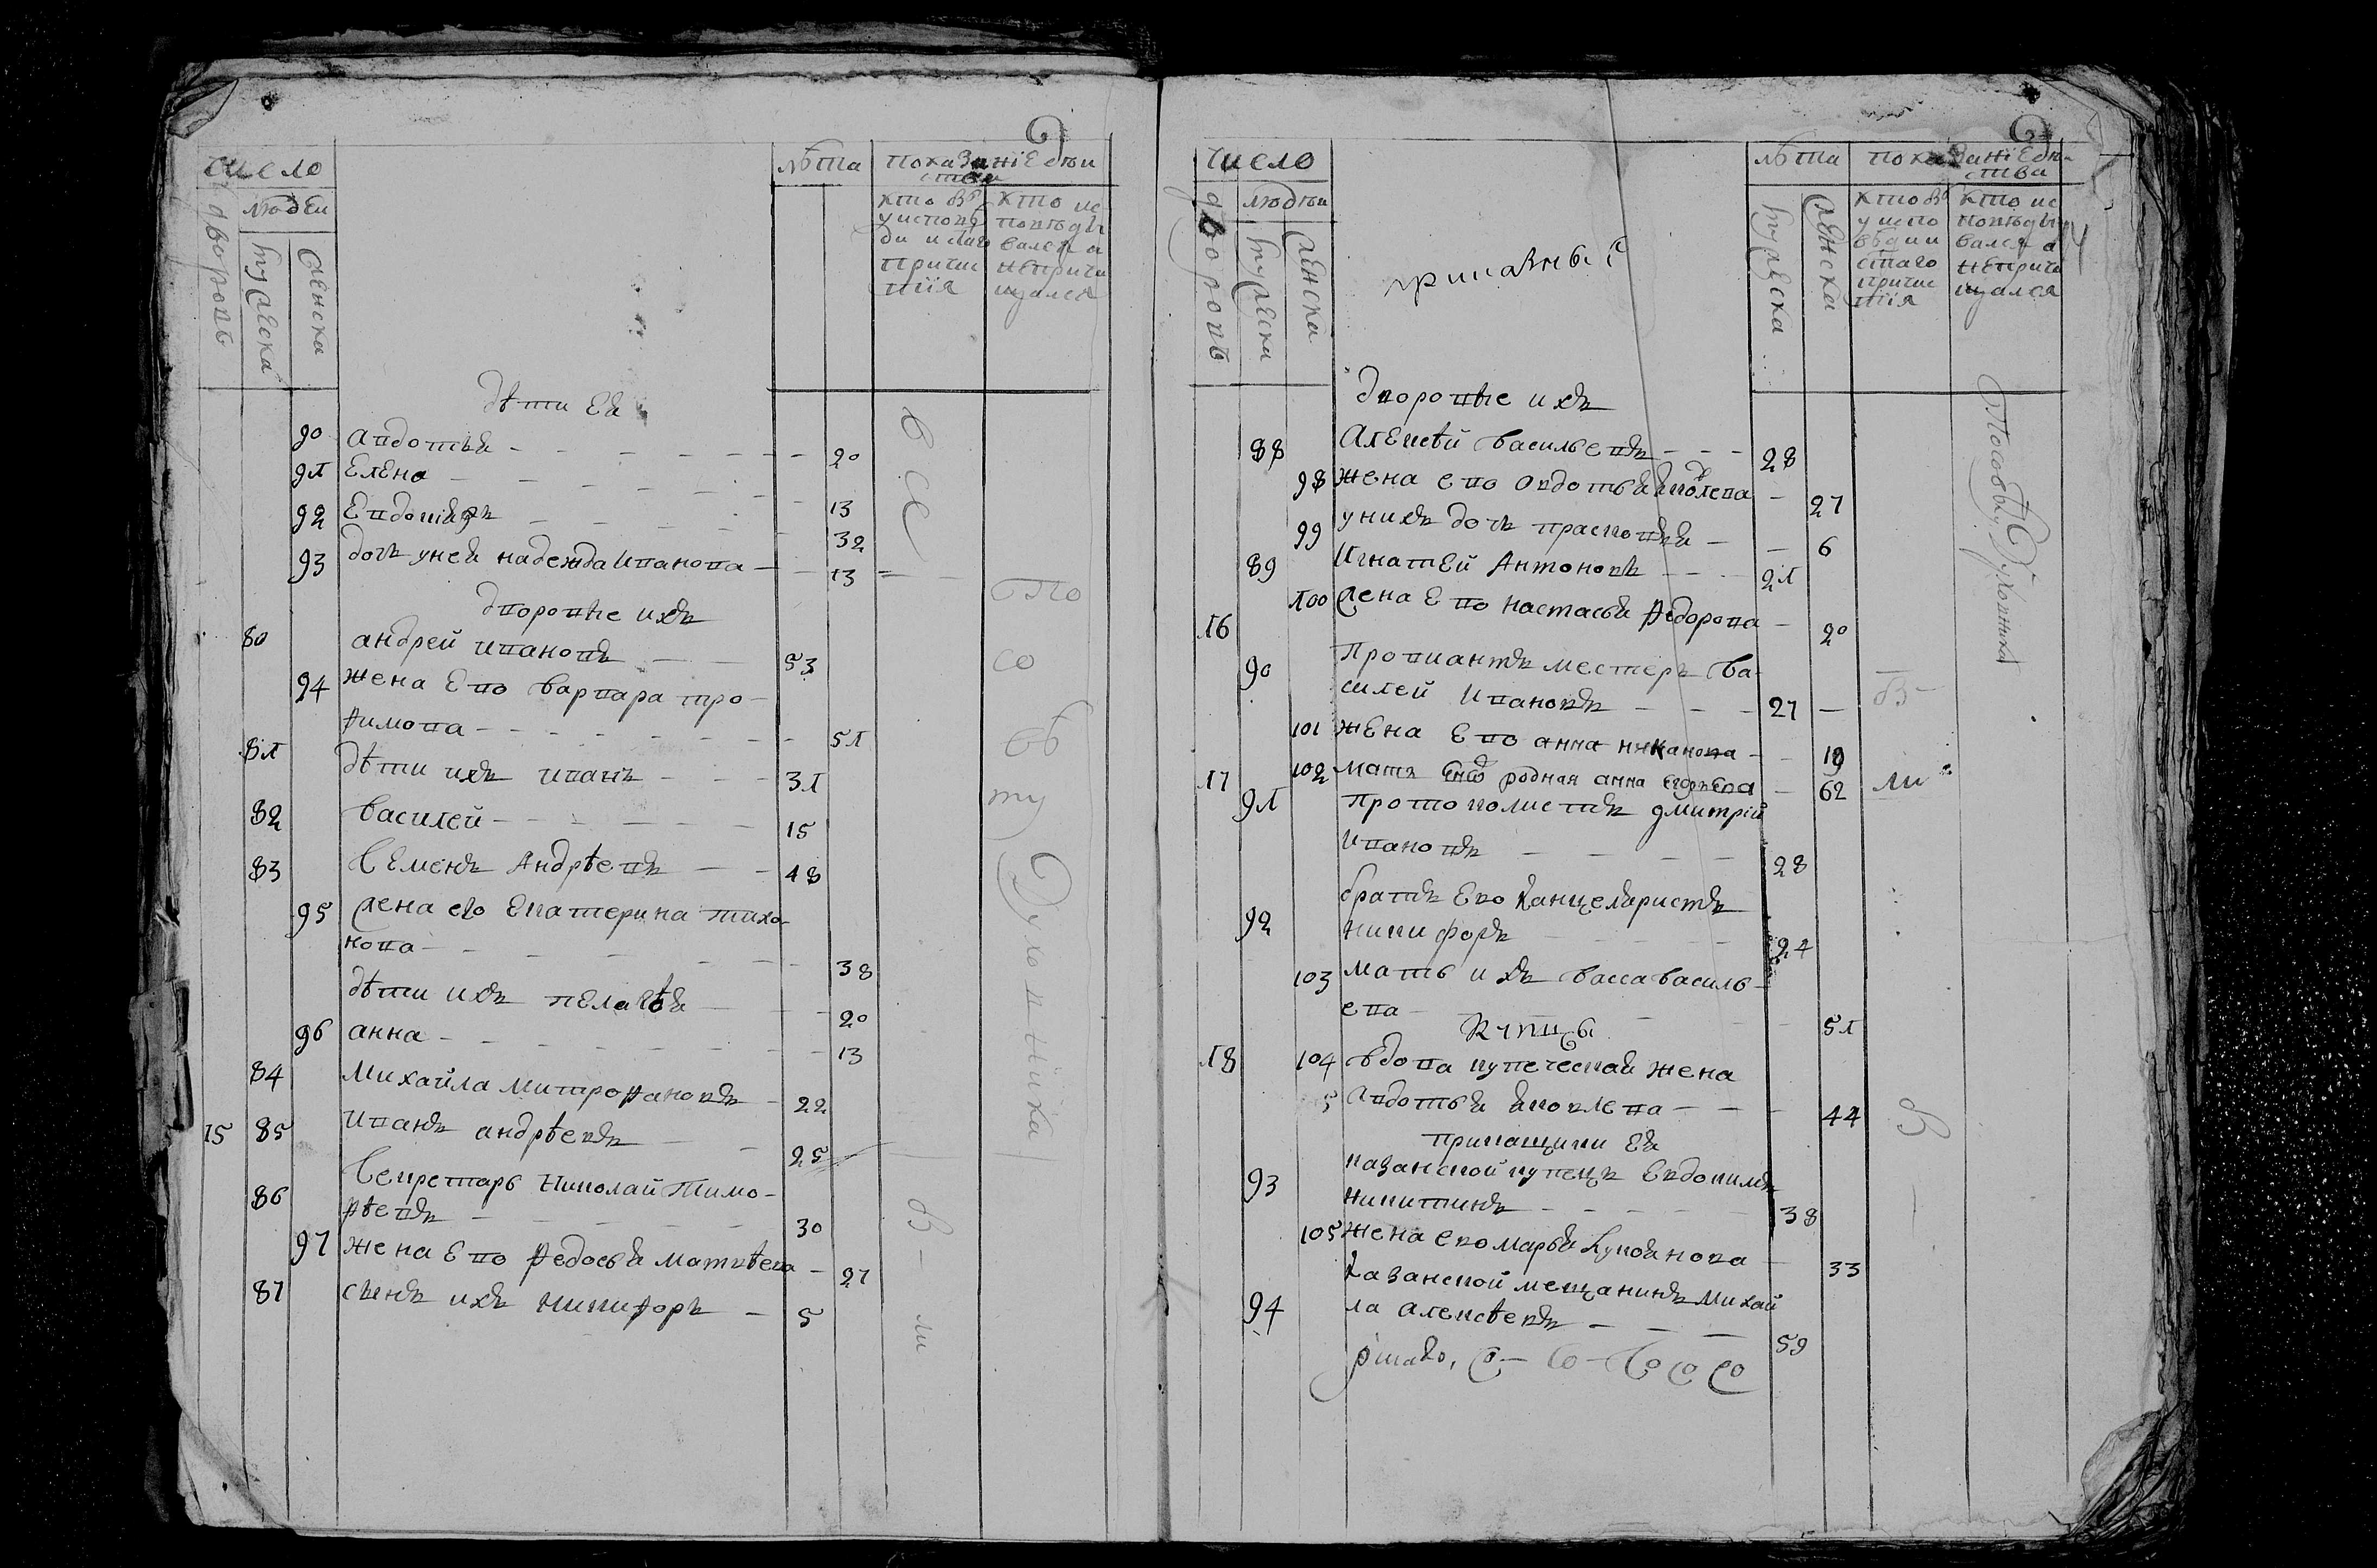 число
людей
дворовъ
мужеска
женска
лѣта
показанiе дѣи
ства
кто былъ
у исповѣ
ди и свято
причас
тiя
кто ис
повѣды
вался а
непрiча
щался
дѣти Ея
90 Авдотья 20
91 Елена 13
92 Евдокiя 32
93 дочь у ней надежда Иванова 13
дворовые ихъ
80 андрей Ивановъ 53
94 жена Ево варвара тро-
фимова 51
81 дѣти ихъ иванъ 31
82 василей 15
83 Семенъ Андрѣевъ 48
95 жена его Екатерина тихо
нова 38
дѣти ихъ пелагѣя 20
96 анна 13
84 Михайла митрофановъ 22
15 85 Иванъ андрѣевъ 25
86 Секретарь николай Тимо-
фѣевъ 30
97 жена Ево Федосья матвѣева 27
87 сынъ ихъ никифоръ 5
все
по
со
вѣ
ту
Духовника
бы-
ли
число
людѣи
дворовъ
мужеска
женска
приказныѣ
лѣта
мужеска
женска
показанiе дѣи
ства
кто былъ
у испо
вѣди и
стаго
причас
тiя
кто ис
повѣды
вался а
неприча
щался
дворовые ихъ
88 Алексѣй васильевъ 28
98 жена ево овдотья яковлева 27
99 у нихъ дочь прасковья 6
89 Игнатей Антоновъ 21
100 жена Ево настасья Федорова 20
16
90 Провиантъ местеръ ва-
силей Ивановъ 27
101 жена Ево анна никонова 19
17 102 мать Ево родная анна егорьева 62
91 протоколистъ дмитрiй
Ивановъ 28
братъ Ево канцеляристъ
92 никифоръ 24
103 мать ихъ васса василь-
ева 51
Купцы
18 104 вдова купеческая жена
Авдотья яковлева 44
прикащики Ея
казанской купецъ Евдокимъ
93 никитинъ 38
105 жена ево марья Лукоянова 33
казанской мещанинъ михай
94 ла алексѣевъ 59
По совѣту Духовника
бы-
ли